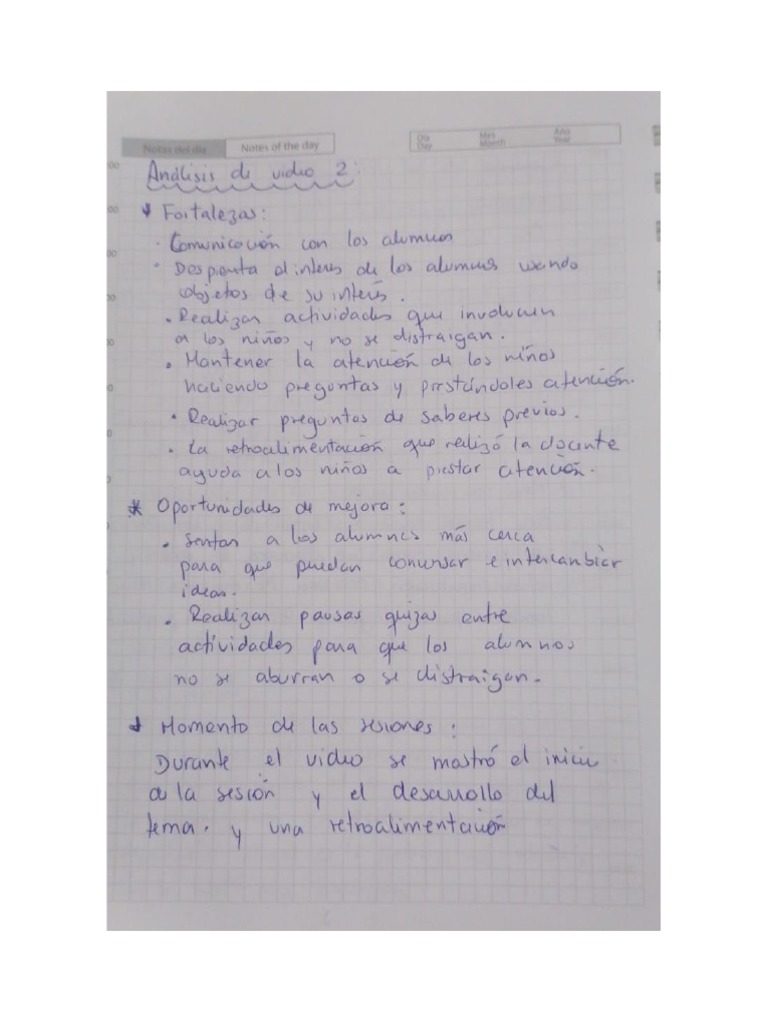 Notas del día Notes of the day
Día Mes Año
Day Month Year
Análisis de video 2:
Fortalezas:
· Comunicación con los alumnos
· Despierta el interés de los alumnos usando
objetos de su interés.
· Realizar actividades que involucren
a los niños y no se distraigan.
· Mantener la atención de los niños
haciendo preguntas y prestándoles atención.
· Realizar preguntas de saberes previos.
· La retroalimentación que realizó la docente
ayuda a los niños a prestar atención.
* Oportunidades de mejora:
· Sentar a los alumnos más cerca
para que puedan conversar e intercambiar
ideas.
· Realizar pausas quizas entre
actividades para que los alumnos
no se aburran o se distraigan.
Momento de las sesiones:
Durante el video se mostró el inicio
de la sesión y el desarrollo del
tema. y una retroalimentación